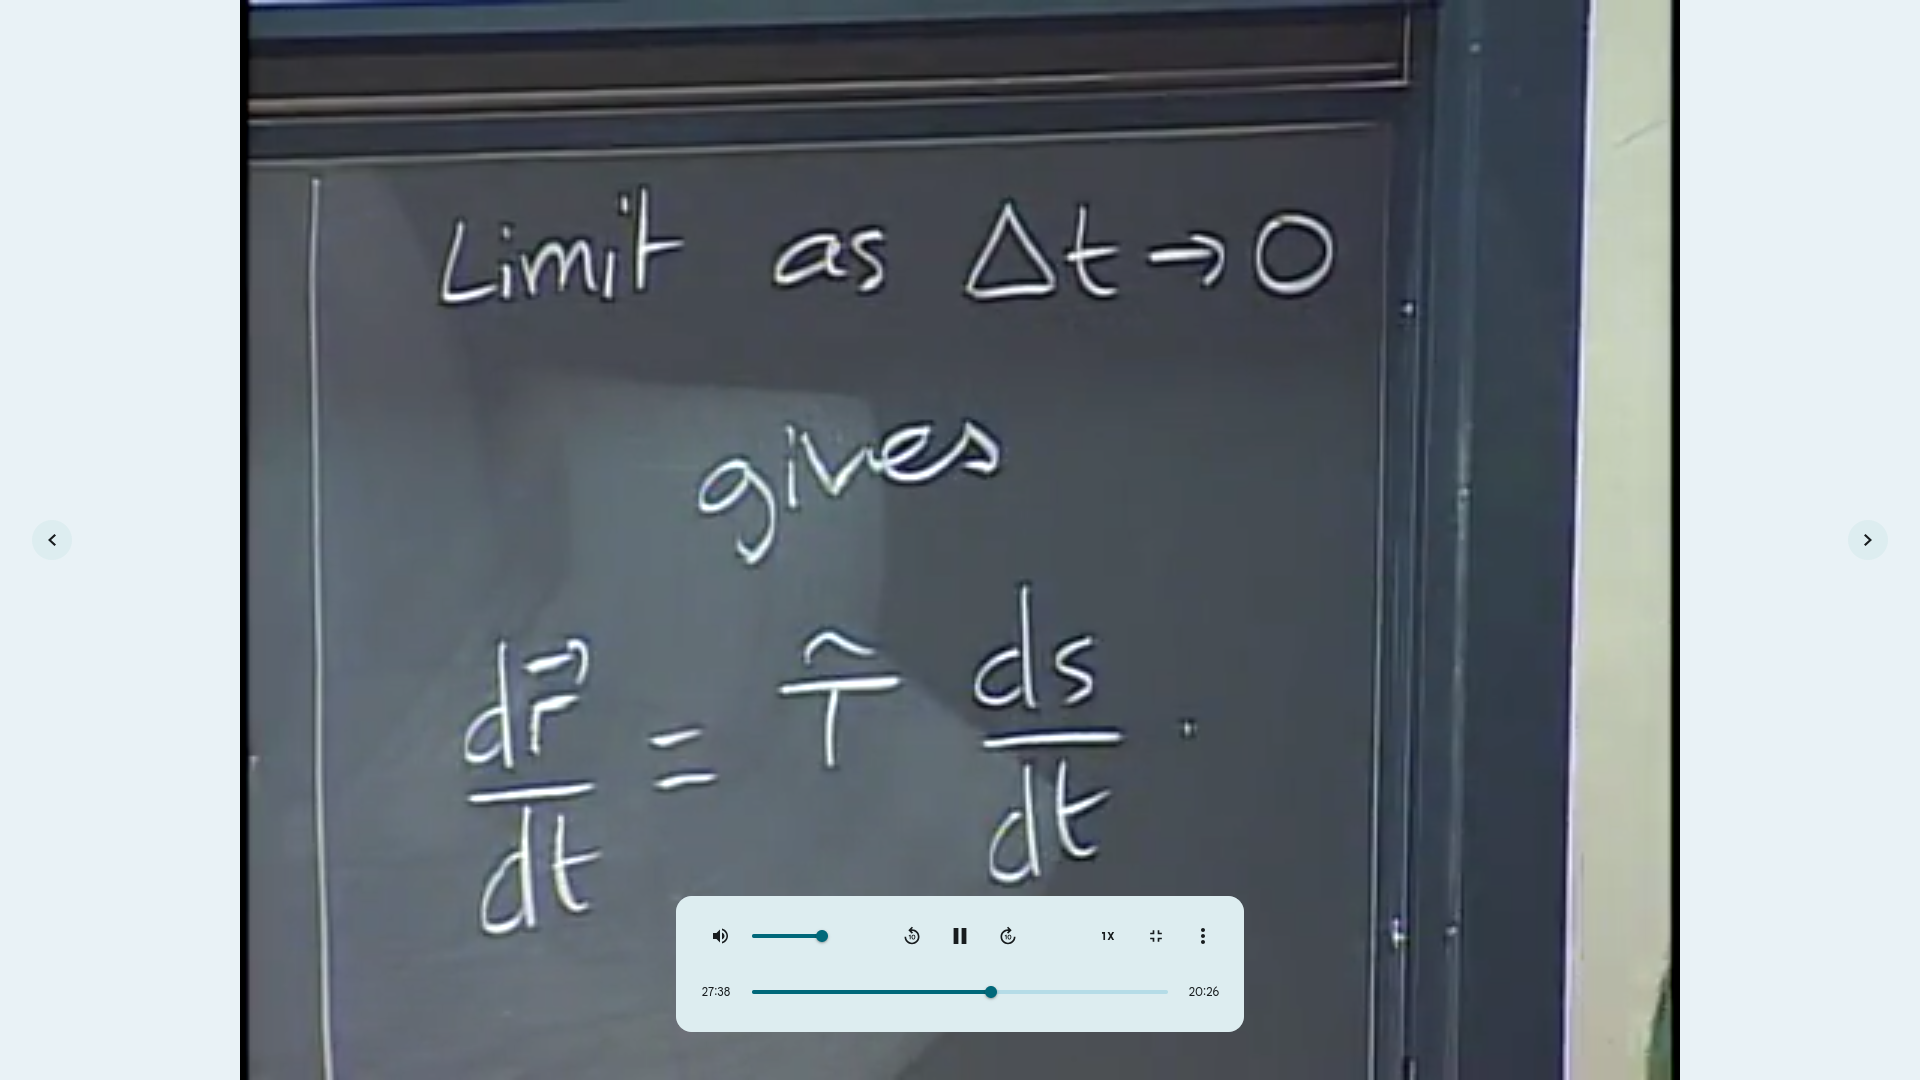 Limit as Δt → 0
gives
dr⃗/dt = T̂ ds/dt .
10
10
1X
27:38
20:26